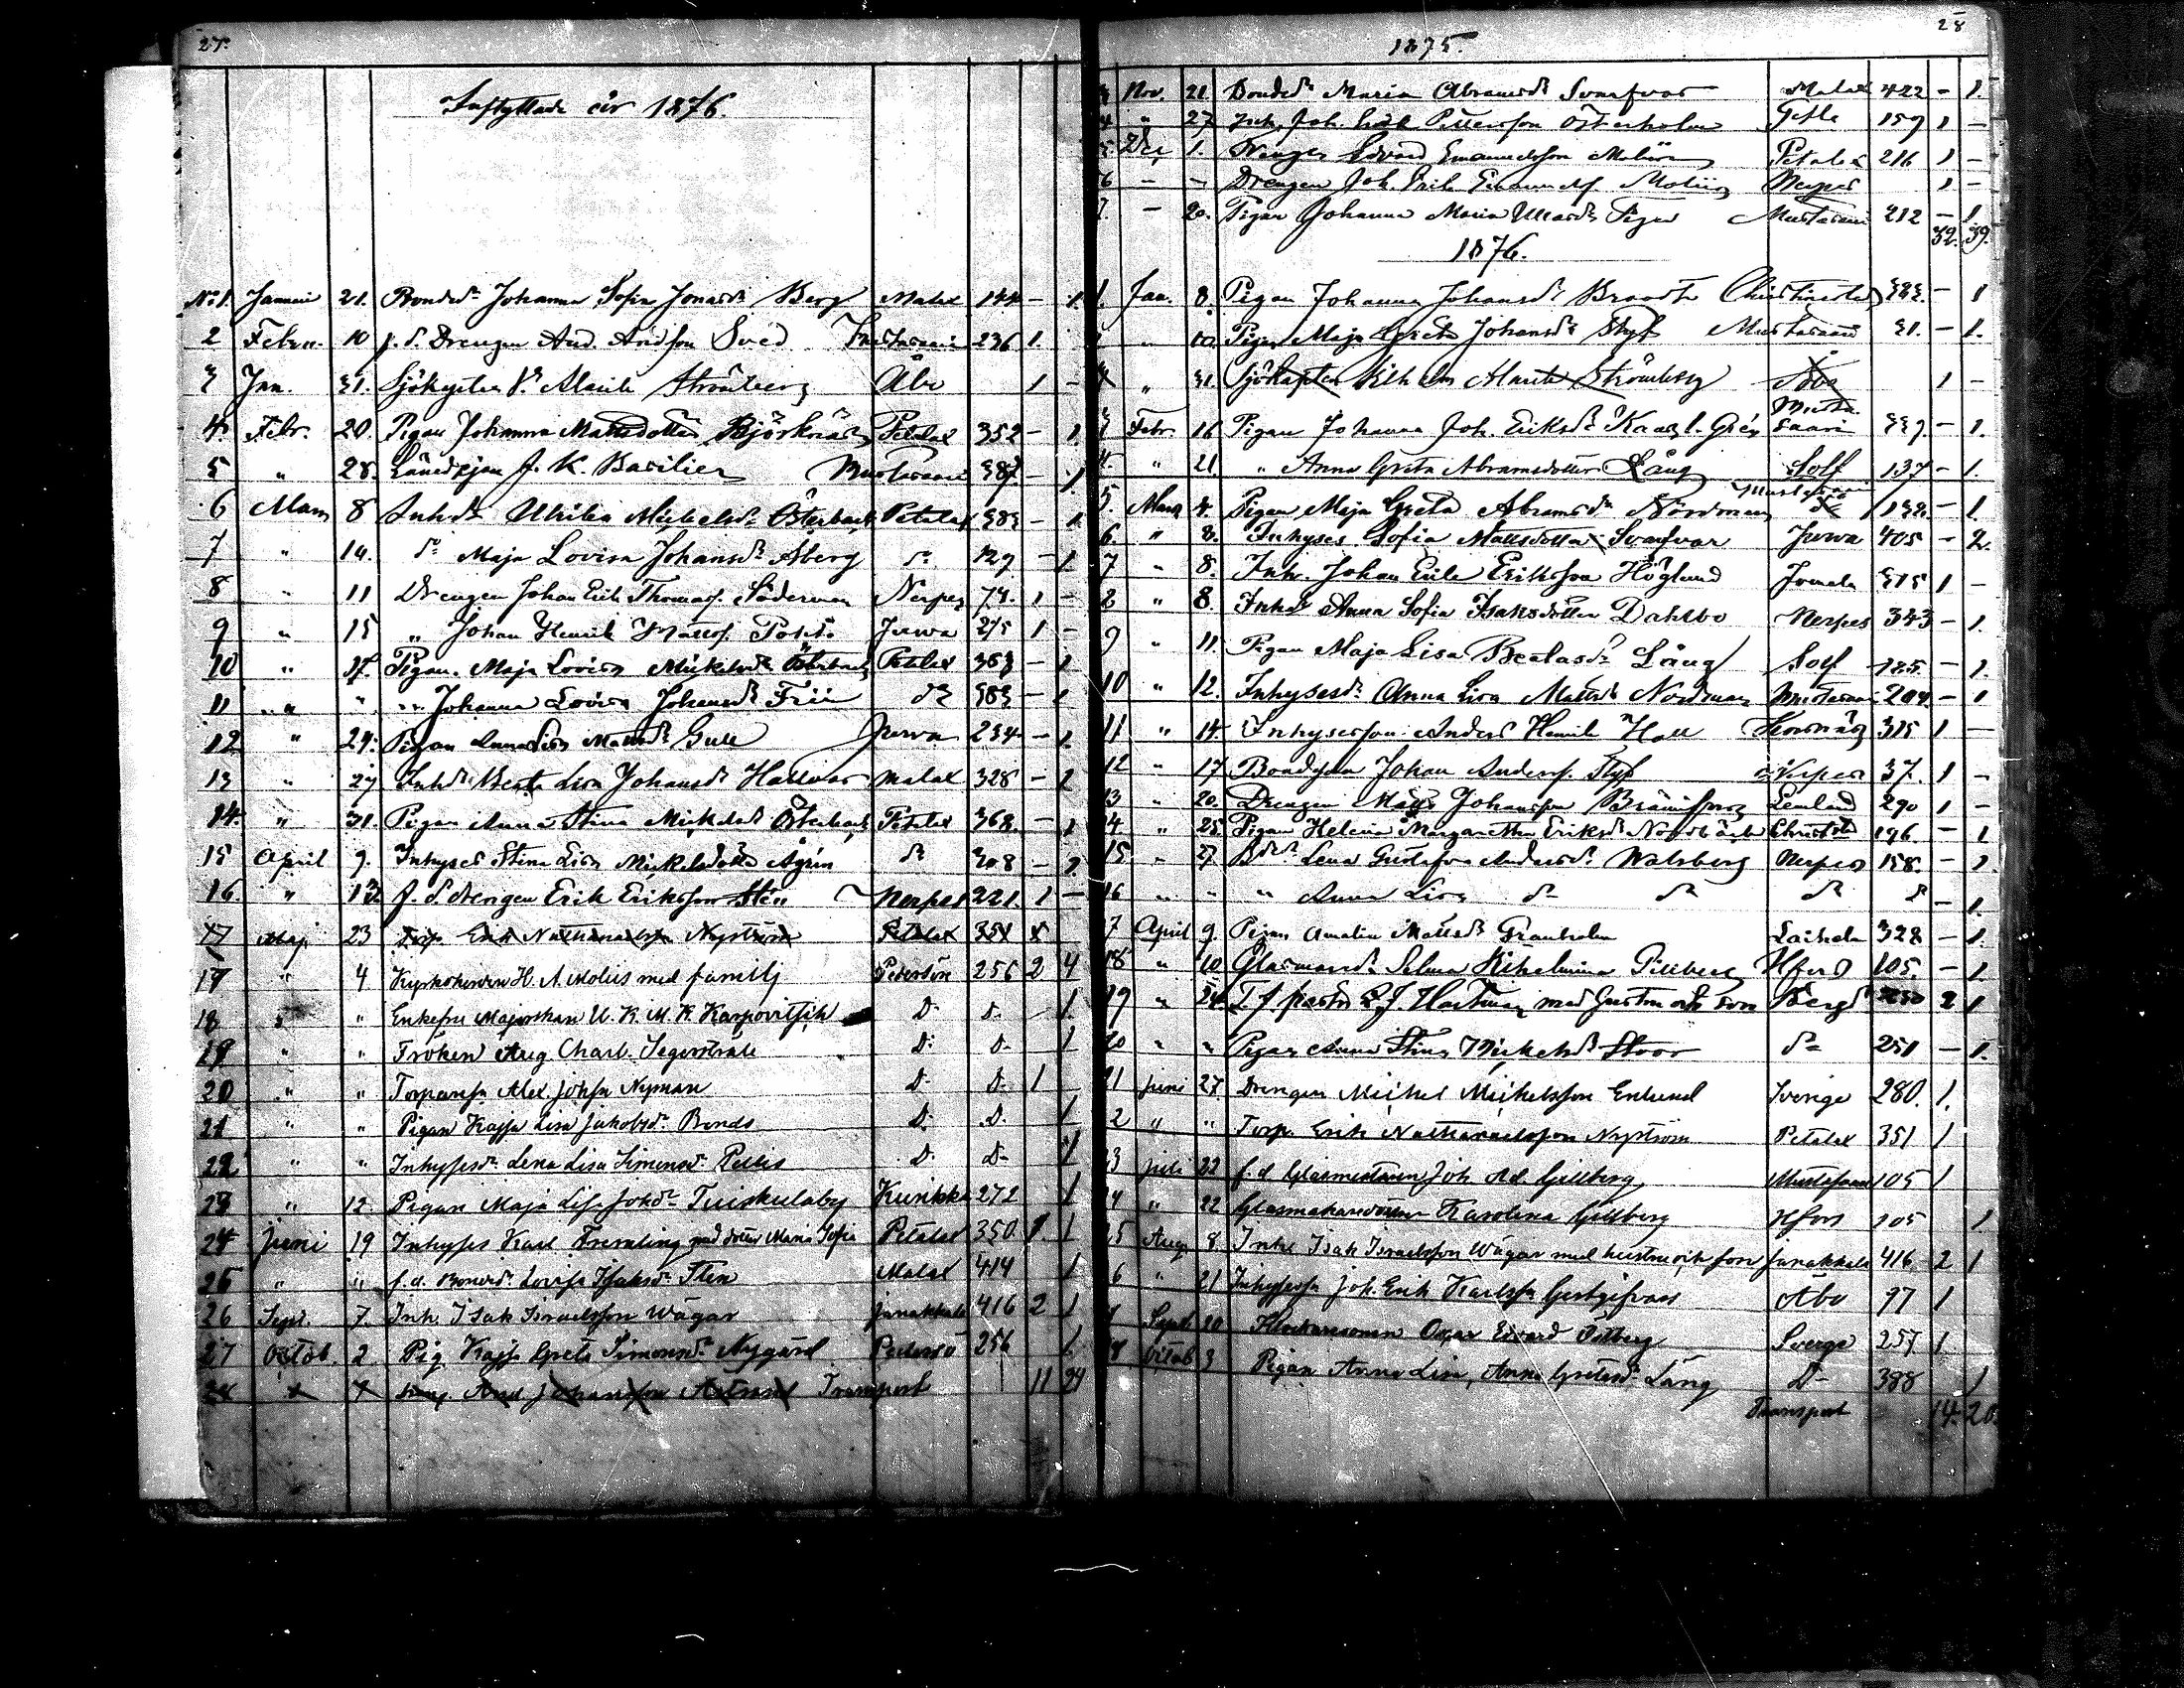 27.
Inflyttade år 1876.
No 1. Januari 21. Bondedr Johanna Sofia Jonasdr Berg Malax 144 - 1.
2 Febru. 10 f. d. Drengen And. Andsson Sved 236 1.
3 Jan. 31. Sjökapten V. Alarik Strömberg Åbo 1 -
4. Febr. 20. Pigan Johanna Mattsdotter Björknäs Petalax 352 - 1.
5 " 28. J. K. Basilier Mustasaari 387. - 1.
6 Mars 8 Inhdr Ulrika Mickelsdr Österback Petalax 383 - 1.
7 " 10. dr Maja Lovisa Johansdr Åberg dr 129 - 1.
8 " 11 Drengen Johan Erik Thomass. Söderman Nerpes 74. 1 -
9 " 15 " Johan Henrik Mattss. Jurva 275 1 -
10 " 17. Pigan Maja Lovisa Mickelsdr Österback Petalax 363 - 1
11 " " " Johanna Lovisa Johansdr Frii dr 383 - 1
12 " 24. Pigan Anna Lisa Mattsdr Gull Jurva 234 - 1.
13 " 27 Inhdr Beata Lisa Johansdr Hallvar Malax 328 - 1
14. " 31. Pigan Anna Stina Mickelsdr Österback Petalax 368. - 1
15 April 9. Inhyses Stina Lisa Mickelsdotter Ågren dr 308 - 1
16. " 13. f. d. drengen Erik Eriksson Sten Nerpes 221. 1 -
17 Maj 23 Torp. Erik Nathanaelsson Nyström Petalax 351 1
17 " 4 Kyrkoherden H. A. Molis med familj Pedersöre 256 2 4
18 " " Enkefru Majorskan U. K. M. K. Karpovitsch D- D- 1
19 " " Fröken Aug. Charl. Segerstråle D- D- 1
20 " " Torparesn Alex. Johsn Nyman D- D- 1
21 " " Pigan Kajsa Lisa Jakobsdr Bonds D- D- 1
22 " " Inhysesdr Lena Lisa Simonsdr Pellis D- D- 1
23 " 12. Pigan Maja Lisa Johdr Tuiskulaby Kurikka 272 1
24 Juni 19 Inhyses Karl Fremling med dotter Maria Sofia Petalax 350 1. 1
25 " " f.d. Bonddr Lovisa Isaksdr Sten Malax 414 1
26 Sept. 7. Inh. Isak Israelsson Wägar Janakkala 416 2 1
27 Octob. 2 Pig. Kajsa Greta Simonsdr Nygård Pedersö 256 1
28 Johansson Transport 11 24
28
1875.
3 Nov. 21. Bondedr Maria Abramsdr Svarfvar Malax 422 - 1.
4 " 27 Inh. Joh. Erik Pettersson Österholm Gefle 159 1 -
5. Dec. 1. Drengen Edvard Emanuelsson Molin Petalax 216 1 -
6 - - Drengen Joh. Erik Emanuelss. Molin Nerpes 1 -
7. - 20. Pigan Johanna Maria Mustasaari 212 - 1.
32. 39.
1876.
1. Jan. 8. Pigan Johanna Johansdr Christinestad - 1
" 10. Pigan Maja Greta Johansdr Skyf Mustasaari 31. - 1.
" 31 Sjökapten Vilhelm Alarik Strömberg Åbo 1 -
3 Febr. 16 Pigan Johanna Joh. Eriksdr Mustasaari 339. - 1.
4. " 21. " Anna Greta Abramsdotter Lång Solf 137 - 1.
5. Mars 4. Pigan Maja Greta Abramsdr Nordman Mustasaari 132. - 1.
6 " 8. Inhyses Sofia Mattsdotter Svarfvar Jurva 405 - 2.
7 " 8. Inh. Johan Erik Eriksson Höglund Jomala 315 1 -
8 " 8. Inhdr Anna Sofia Isaksdotter Dahlbo Nerpes 343 - 1.
9 " 11. Pigan Maja Lisa Beatasdr Lång Solf 125. - 1.
10 " 12. Inhysesdr Anna Lisa Mattsdr Nordman Mustasaari 204 - 1
11 " 14 Inhysesson Anders Henrik Hall Korsnäs 315 1 -
12 " 17 Bondeson Johan Anderss. Skyf Nerpes 37. 1 -
13 " 20. Drengen Matts Johansson Lemland 290 1 -
14 " 25. Pigan Helena Margaretha Eriksdr Nordbäck Christstd 196. - 1
15 " 27 Bdedr Lena Gustafva Andersdr Walsberg Nerpes 158. - 1.
16 " " " Anna Lisa dr dr dr dr - 1.
17 April 9. Pigan Amalia Mattsdr Granholm Laihela 328 - 1.
18 " 10 Glasmaredr Selma Vilhelmina Gillberg Hfors 105. - 1.
19 " 24. T. f. pastor L. J. Hartman med hustru och son Bergö 250 2 1
20 " " Pigan Anna Stina Mickelsdr Stoor dr 251 - 1.
21 Juni 27 Drengen Mickel Mickelsson Enlund Sverige 280. 1.
2 " " Torp. Erik Nathanaelsson Nyström Petalax 351 1
23 Juli 22 f.d. Glasmästaren Joh. Ad. Gillberg Mustasaari 105 1
24 " 22 Glasmakaredotter Karolina Gillberg Hfors 105 1
25 Aug. 8 Inh. Isak Israelsson Wägar med hustru och son Janakkala 416 2 1
6 " 21 Inhysessn Joh. Erik Karlssn Gestgifvars Åbo 97 1
7 Sept. 20 Klockaresonen Oskar Edvard Sverge 257 1
8 Octob 3 Pigan Anna Lisa, Anna Gretasdr Lång D- 388 1
Transport 14. 26